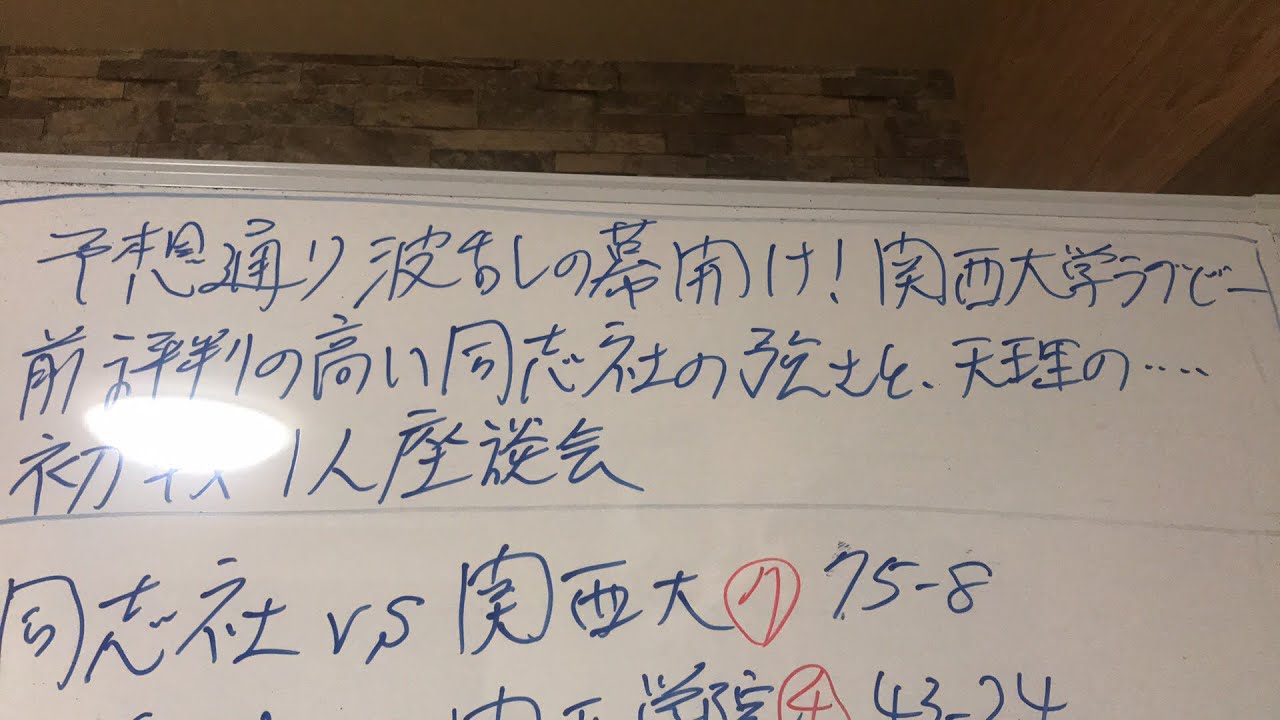 予想通り波乱の幕開け!関西大学ラグビー
前評判の高い同志社の強さと、天理の‥‥
初戦1人座談会
同志社 vs 関西大⑦ 75-8
学院④ 43-24